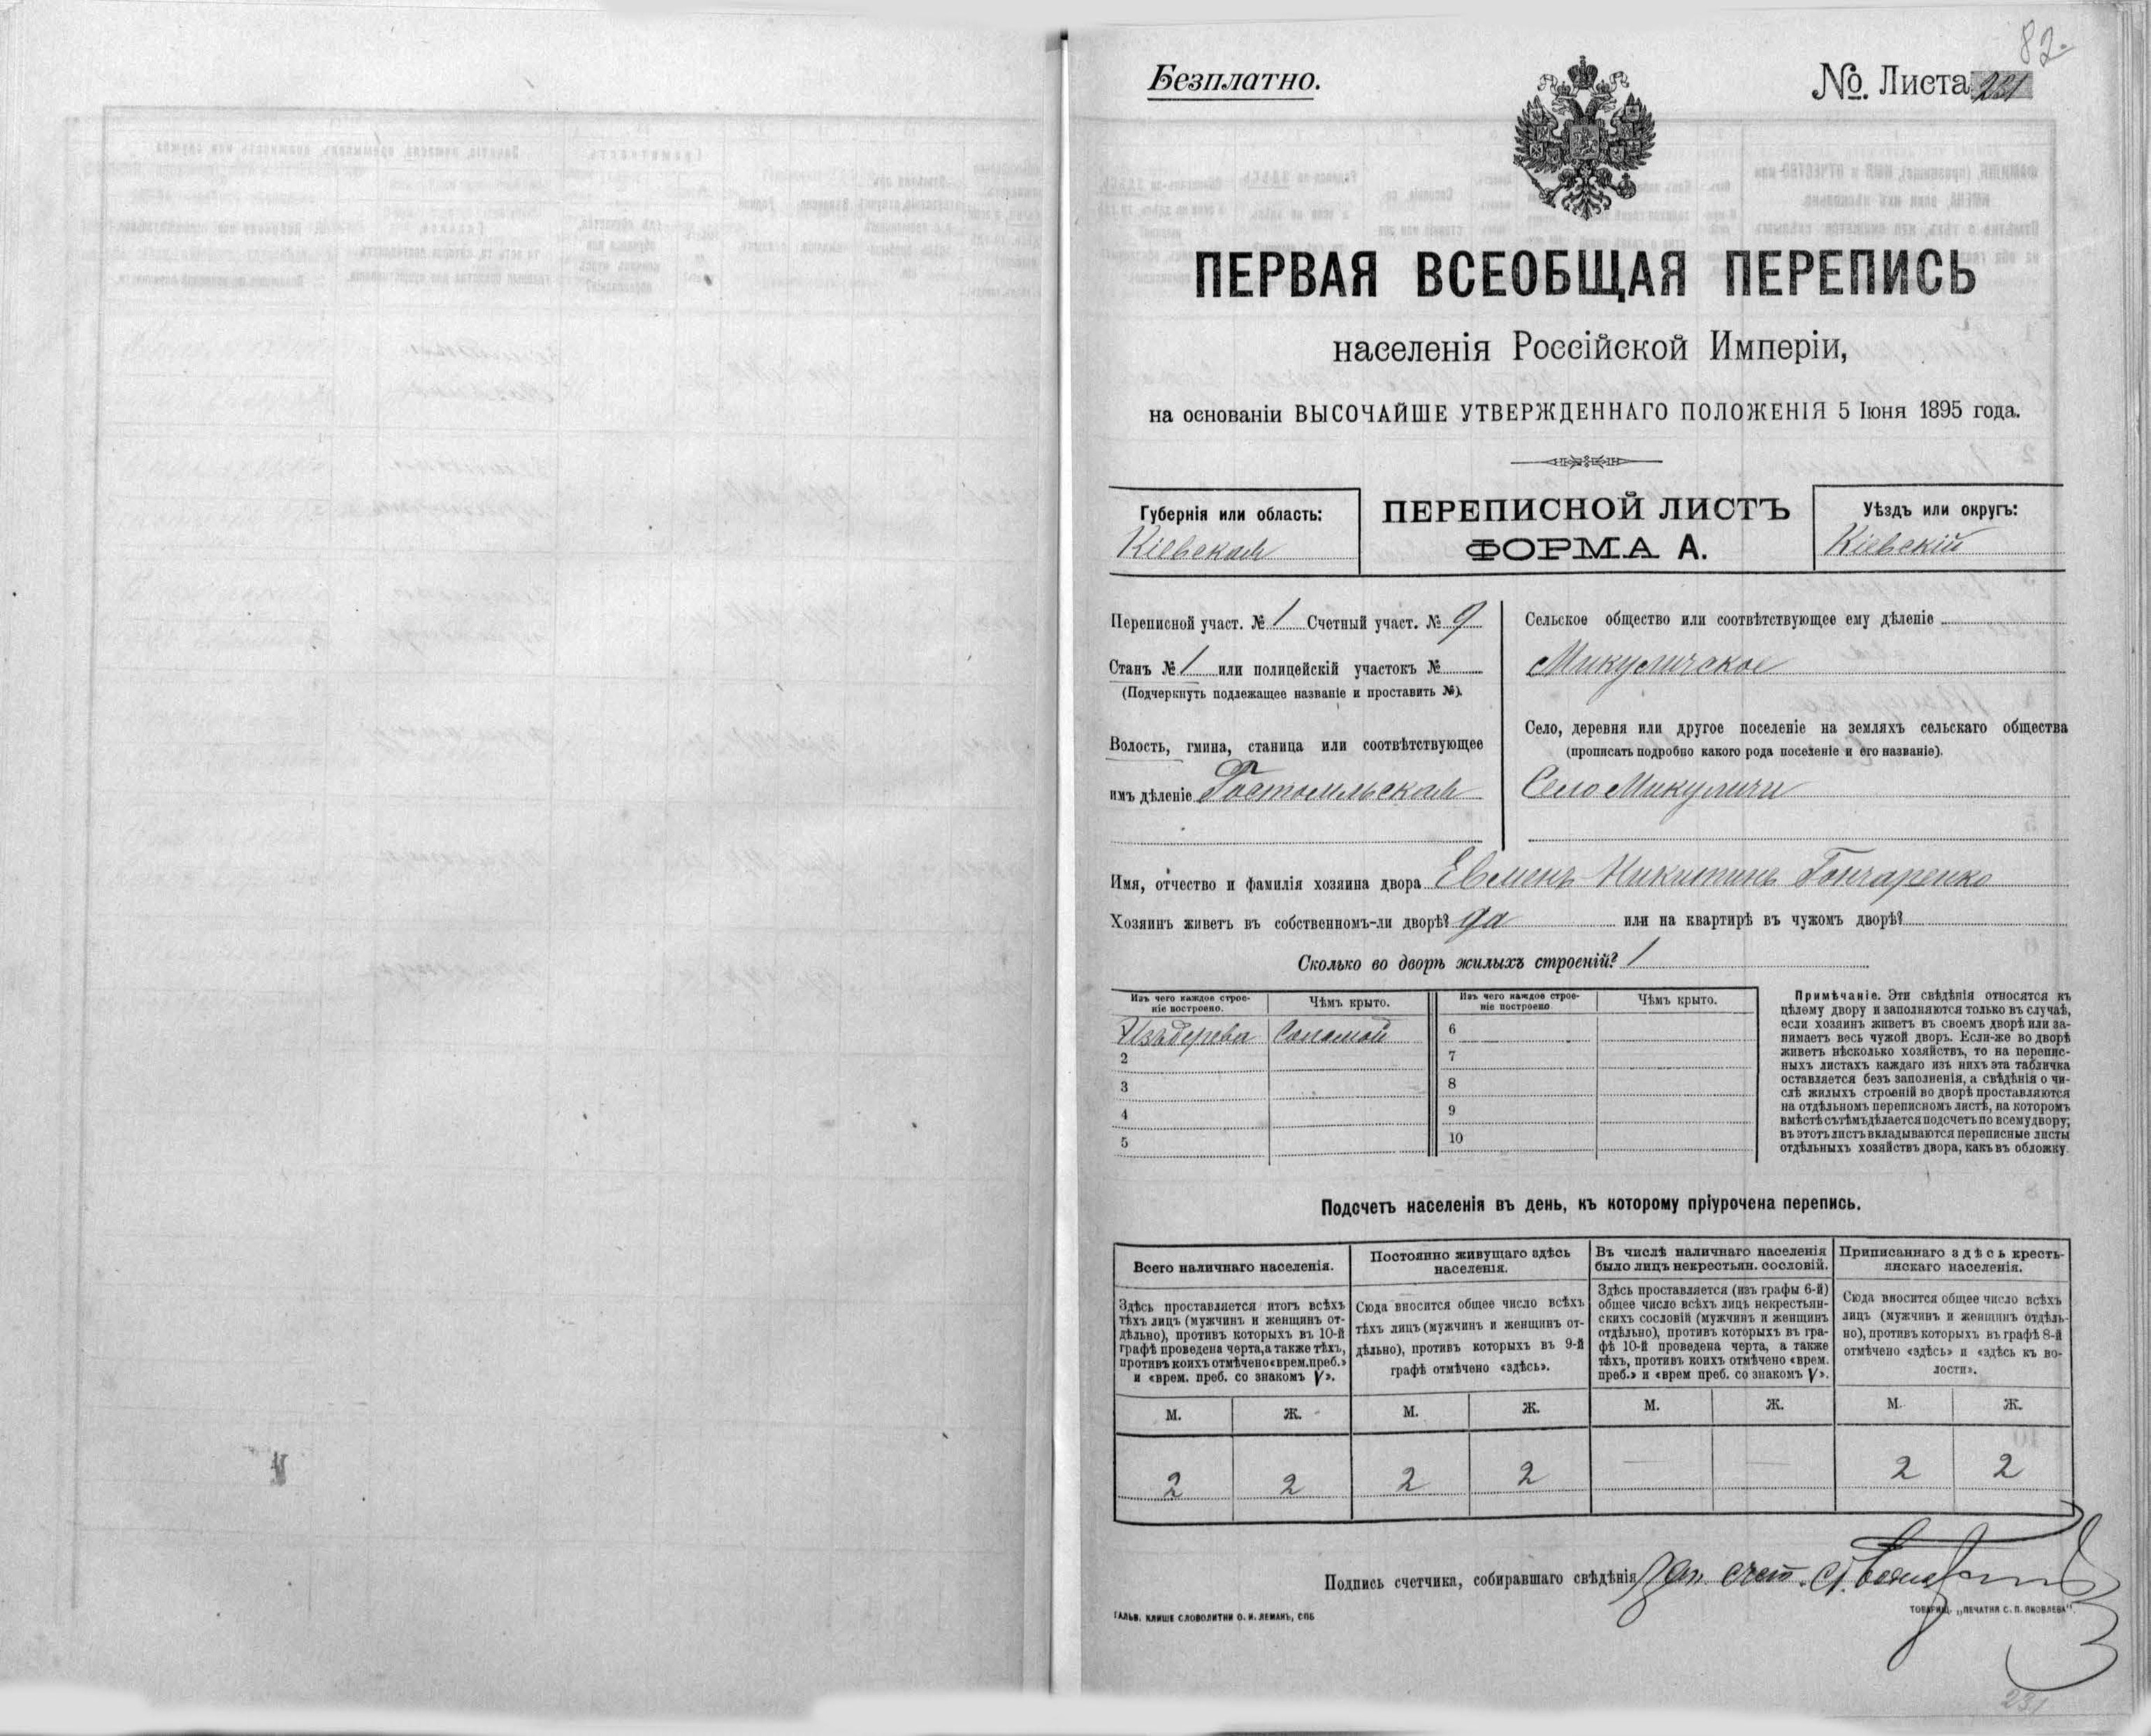 82
Безплатно.
№. Листа 231
ПЕРВАЯ ВСЕОБЩАЯ ПЕРЕПИСЬ
населенія Россійской Имперіи,
на основаніи ВЫСОЧАЙШЕ УТВЕРЖДЕННАГО ПОЛОЖЕНІЯ 5 Іюня 1895 года.
Губернія или область:
Кіевская
ПЕРЕПИСНОЙ ЛИСТЪ
ФОРМА А.
Уѣздъ или округъ:
Кіевскій
Переписной участ. № 1 Счетный участ. № 9
Станъ № 1 или полицейскій участокъ №
(Подчеркнуть подлежащее названіе и проставить №).
Волость, гмина, станица или соотвѣтствующее
имъ дѣленіе Гостомельская
Сельское общество или соотвѣтствующее ему дѣленіе
Микуличское
Село, деревня или другое поселеніе на земляхъ сельскаго общества
(прописать подробно какого рода поселеніе и его названіе).
Село Микуличи
Имя, отчество и фамилія хозяина двора Евменъ Никитинъ Гончаренко
Хозяинъ живетъ въ собственномъ-ли дворѣ? да или на квартирѣ въ чужомъ дворѣ?
Сколько во дворѣ жилыхъ строеній? 1
Изъ чего каждое строе-
ніе построено.
Чѣмъ крыто.
Изъ чего каждое строе-
ніе построено
Чѣмъ крыто.
Изъ дерева Соломой 6
2 7
3 8
4 9
5 10
Примѣчаніе. Эти свѣдѣнія относятся къ
цѣлому двору и заполняются только въ случаѣ,
если хозяинъ живетъ въ своемъ дворѣ или за-
нимаетъ весь чужой дворъ. Если-же во дворѣ
живетъ нѣсколько хозяйствъ, то на перепис-
ныхъ листахъ каждаго изъ нихъ эта табличка
оставляется безъ заполненія, а свѣдѣнія о чи-
слѣ жилыхъ строеній во дворѣ проставляются
на отдѣльномъ переписномъ листѣ, на которомъ
вмѣстѣ съ тѣмъ дѣлается подсчетъ по всему двору;
въ этотъ листъ вкладываются переписные листы
отдѣльныхъ хозяйствъ двора, какъ въ обложку.
Подсчетъ населенія въ день, къ которому пріурочена перепись.
Всего наличнаго населенія.
Здѣсь проставляется итогъ всѣхъ
тѣхъ лицъ (мужчинъ и женщинъ от-
дѣльно), противъ которыхъ въ 10-й
графѣ проведена черта, а также тѣхъ,
противъ коихъ отмѣчено «врем. преб.»
и «врем. преб. со знакомъ V».
Постоянно живущаго здѣсь
населенія.
Сюда вносится общее число всѣхъ
тѣхъ лицъ (мужчинъ и женщинъ от-
дѣльно), противъ которыхъ въ 9-й
графѣ отмѣчено «здѣсь».
Въ числѣ наличнаго населенія
было лицъ некрестьян. сословій.
Здѣсь проставляется (изъ графы 6-й)
общее число всѣхъ лицъ некрестьян-
скихъ сословій (мужчинъ и женщинъ
отдѣльно), противъ которыхъ въ гра-
фѣ 10-й проведена черта, а также
тѣхъ, противъ коихъ отмѣчено «врем.
преб.» и «врем преб. со знакомъ V».
Приписаннаго здѣсь кресть-
янскаго населенія.
Сюда вносится общее число всѣхъ
лицъ (мужчинъ и женщинъ отдѣль-
но), противъ которыхъ въ графѣ 8-й
отмѣчено «здѣсь» и «здѣсь къ во-
лости».
М. Ж. М. Ж. М. Ж. М. Ж.
2 2 2 2 — — 2 2
Подпись счетчика, собиравшаго свѣдѣнія
ГАЛЬВ. КЛИШЕ СЛОВОЛИТНИ О. И. ЛЕМАНЪ, СПБ
ТОВАРИЩ. „ПЕЧАТНЯ С. П. ЯКОВЛЕВА".
231